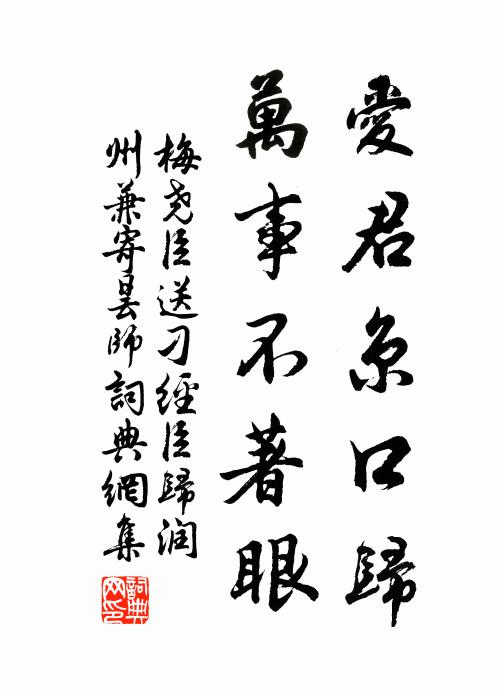 愛君京口歸
萬事不著眼
梅堯臣送刁經臣歸潤
州兼寄曇師詞典網集
詞典網印